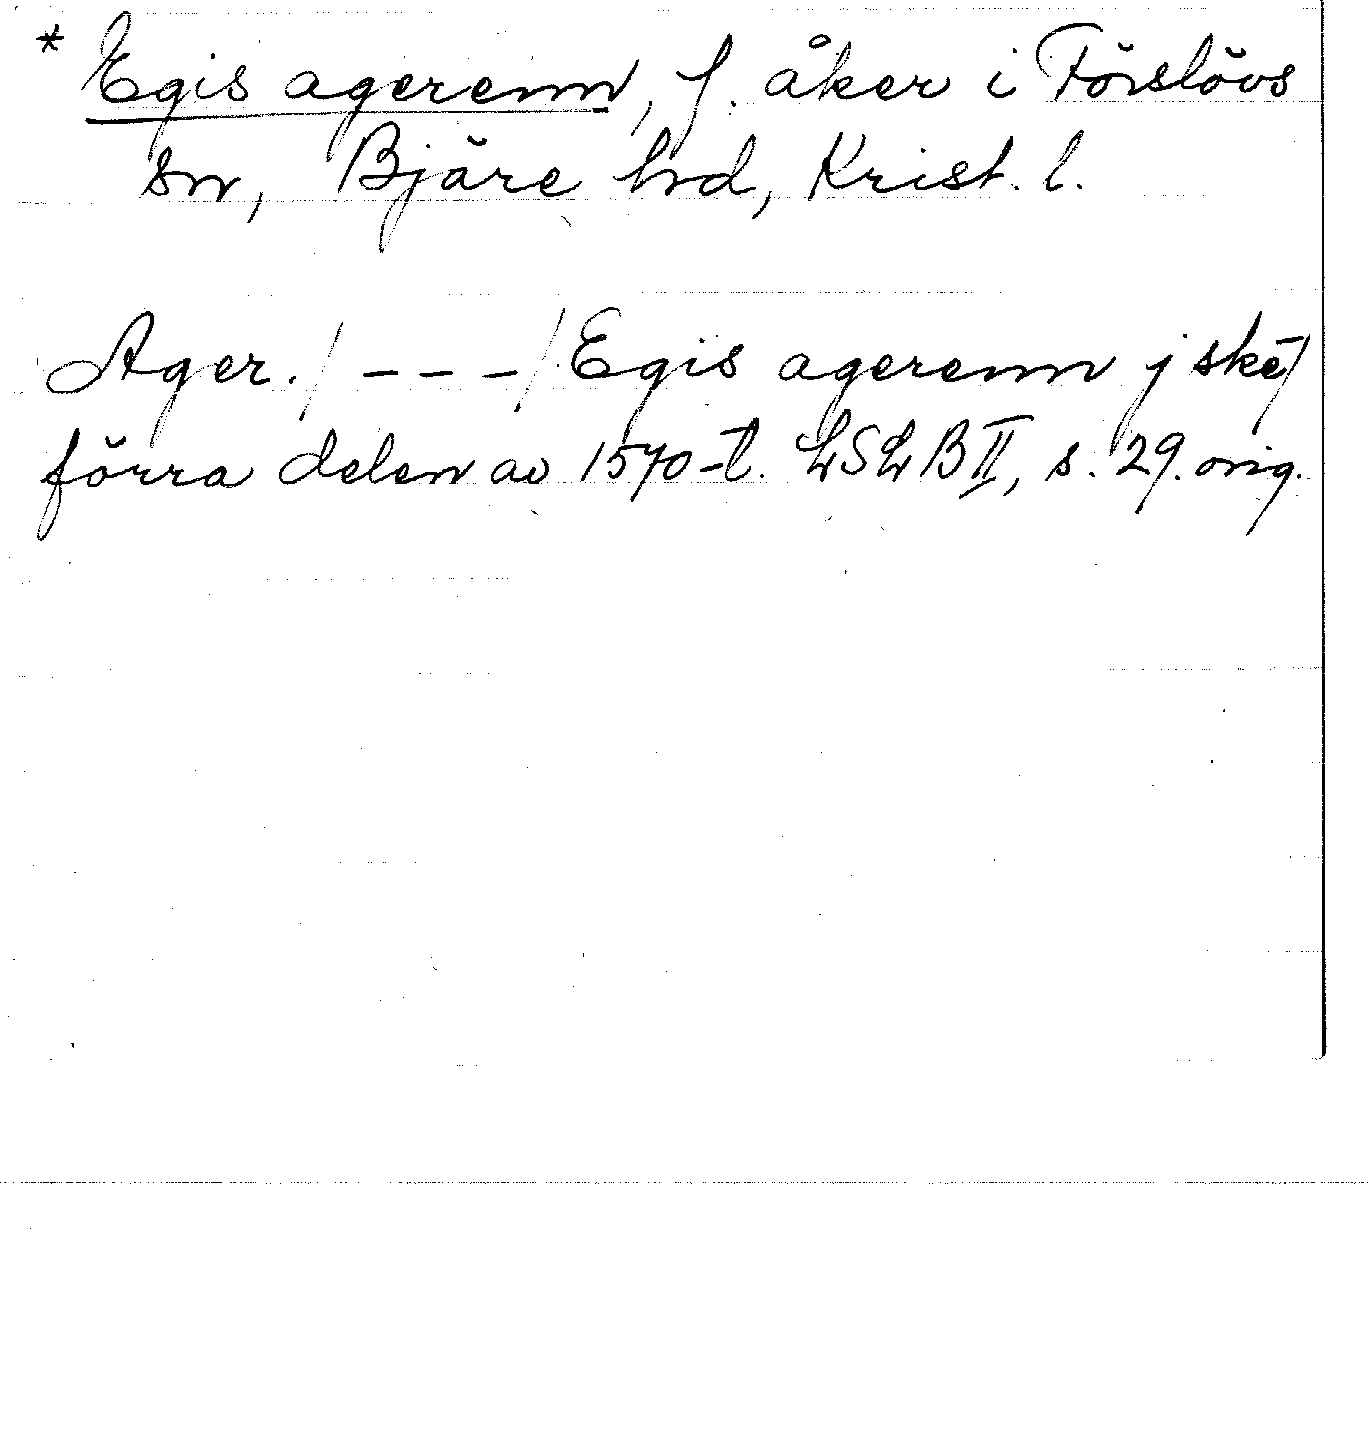 * Egis agerenn, f. åker i Förslövs
sn, Bjäre hd, Krist. l.
Ager. / - - - / Egis agerenn j skē /
förra delen av 1570-t. LSLB II, s. 29. orig.